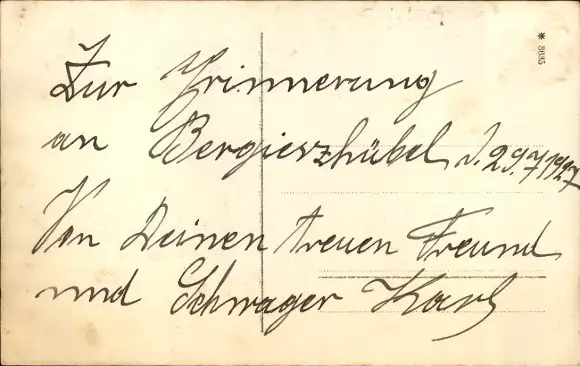 Zur Erinnerung
an Bergieszhübel d. 29.7.1927
Von Deinen treuen Freund
und Schwager Karl
* 3695